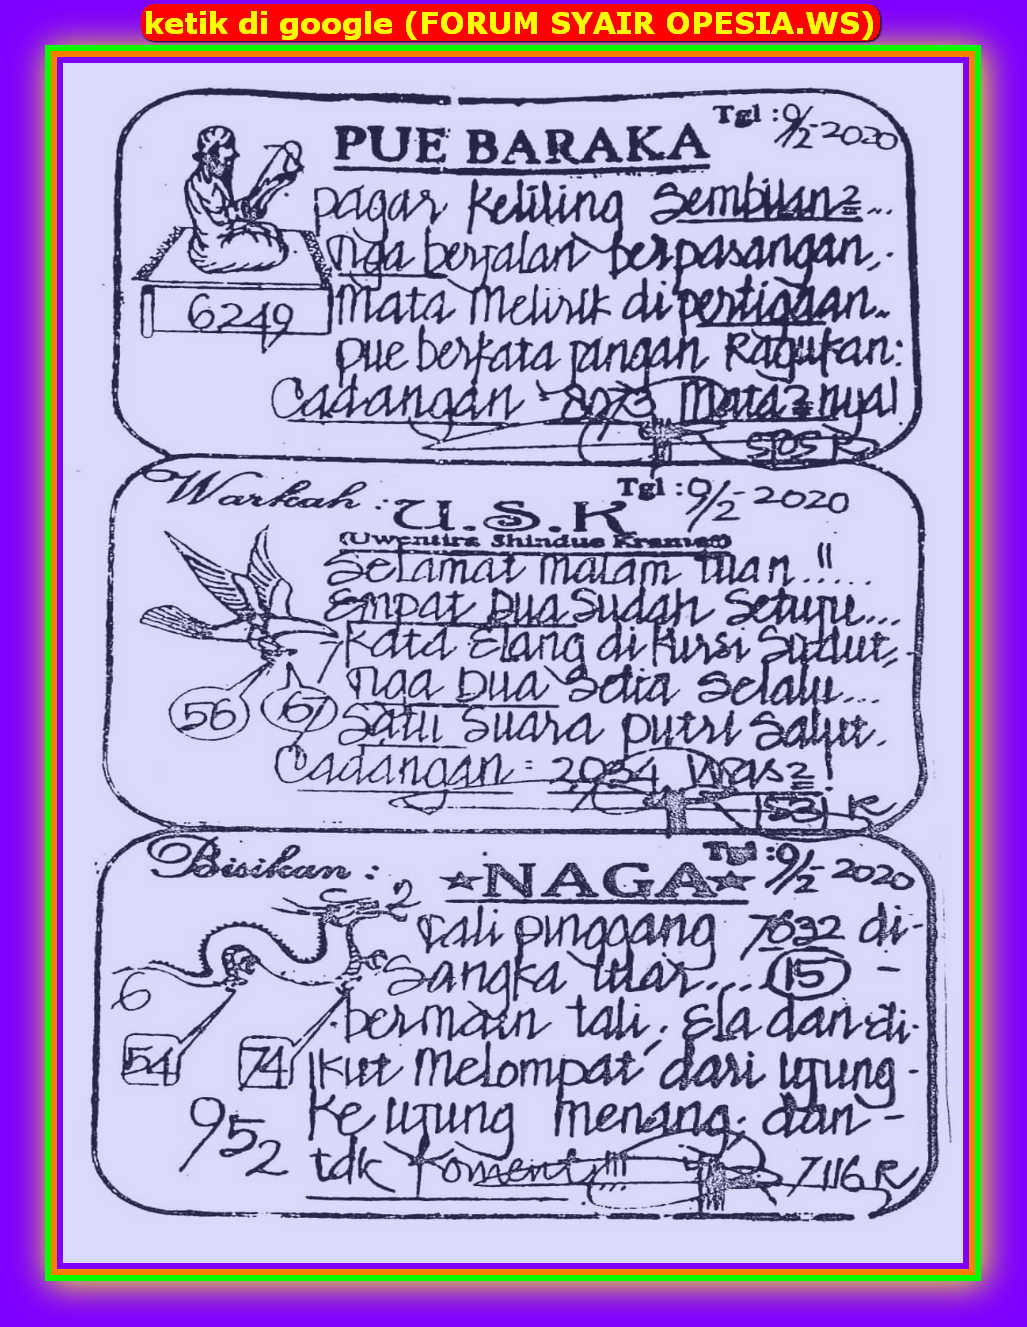 ketik di google (FORUM SYAIR OPESIA.WS)
Tgl : 9/2-2020
PUE BARAKA
pagar keliling sembilan2...
nga berjalan berpasangan,.
6249
Mata melirik di pertigaan..
pue berkata jangan Ragukan:
Cadangan = 8073 Mata2 nya!
5105 R
Warkah : U.S.K
Tgl : 9/2-2020
(Uwentira Shindue Kramat)
Selamat malam tuan..!!...
Empat Dua Sudah Setuju...
kata Elang di kursi Sudut,.
7
nga Dua Setia Selalu...
56
67
Satu Suara putri Salut.
Cadangan = 2034 Was2 !
1531 R
Bisikan :
Tgl : 9/2-2020
NAGA
2
Tali pinggang 7632 di-
Sangka Ular.... 15 -
6
bermain tali, Ela dan di-
54
74
Ikut Melompat dari Ujung -
952
ke Ujung menang. dan -
tdk Koment!!!
7116 R